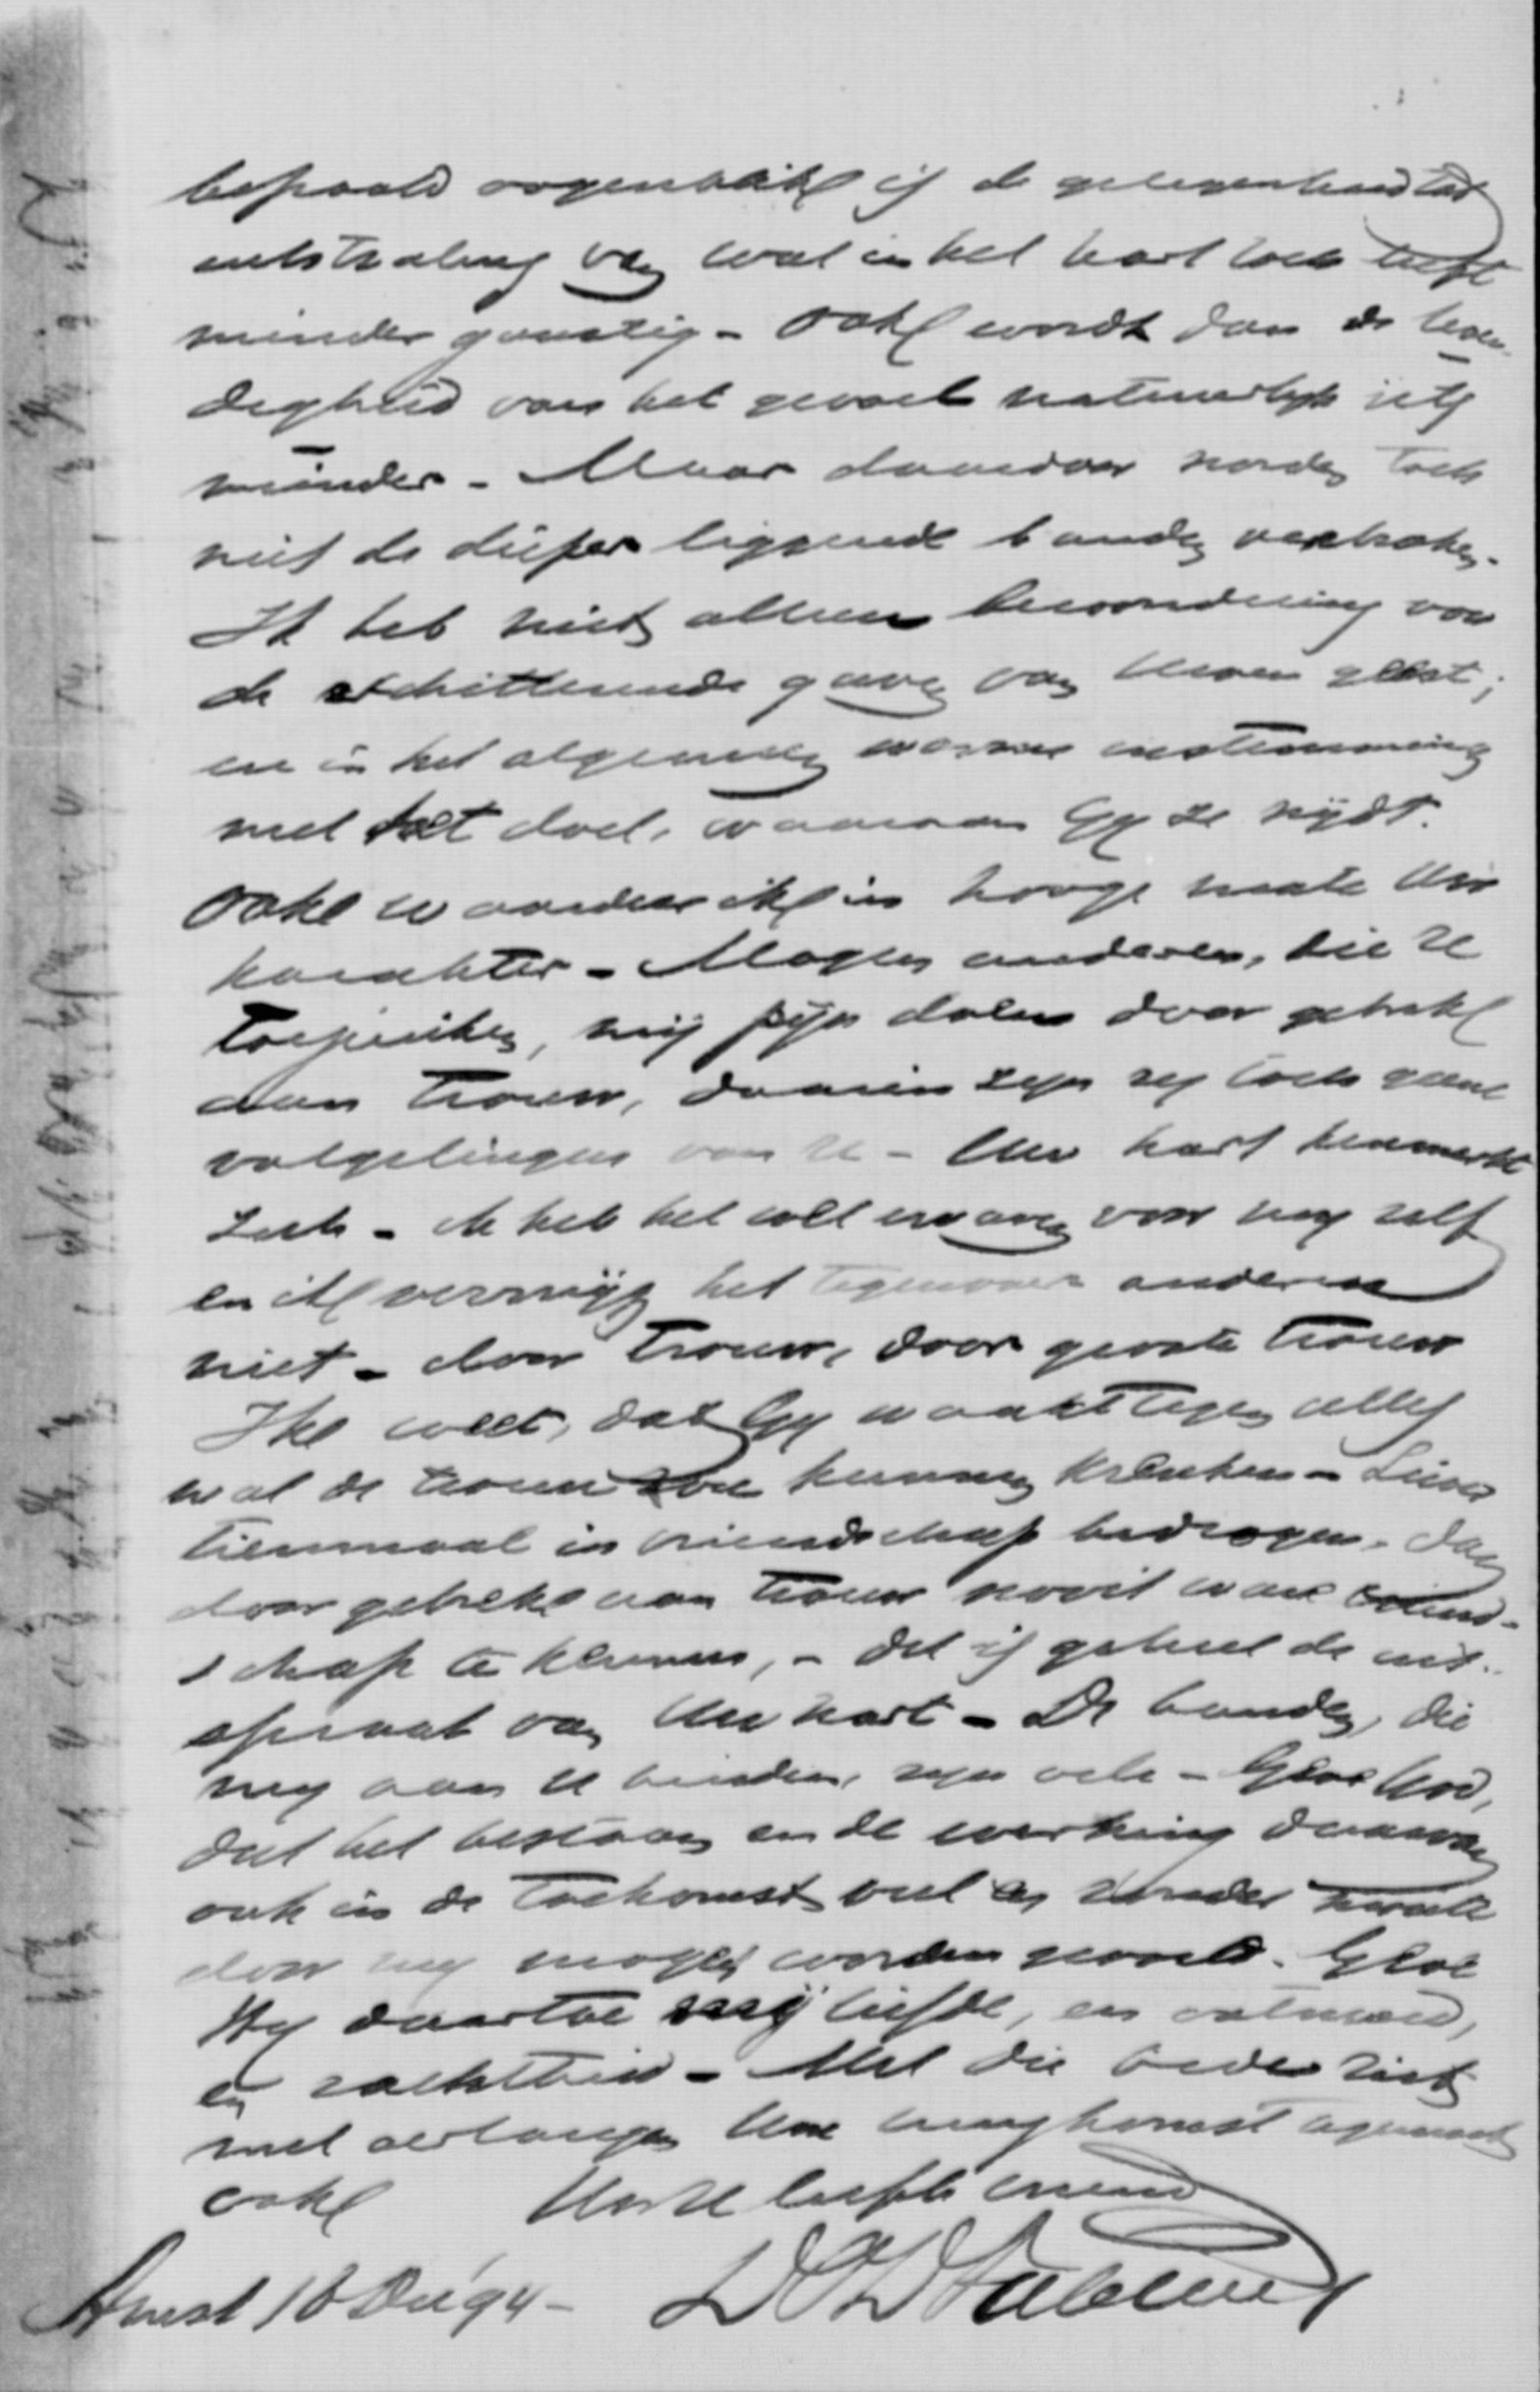 bepaald oogenblik is de gelegenheid tot
uitstraling van wat in het hart toch leeft
minder gunstig - Ook wordt dan de leven-
digheid van het gevoel natuurlijk iets
minder - Maar daardoor worden toch
niet de dieper liggende banden verbroken.
Ik heb niet alleen bewondering voor
de schitterende gaven van Uwen geest;
en in het algemeen warme instemming
met het doel, waaraan Gij ze wijdt.
Ook waardeer ik in hooge mate Uw
karakter - Mogen anderen, die U
toejuichen, mij pijn doen door gebrek
aan trouw, daarin zijn zij toch geene
volgelingen van U - Uw hart kenmerkt
zich - ik heb het wel ervaren voor mij zelf
en ik verzwijg het tegenover anderen
niet - door trouw, door groote trouw
Ik weet, dat Gij waakt tegen alles
wat de trouw zou kunnen krenken - Liever
tienmaal in vriendschap bedrogen, dan
door gebrek aan trouw nooit ware vriend-
schap te kennen, - dit is geheel de uit-
spraak van Uw hart - De banden, die
mij aan U binden, zijn vele - Geve God,
dat het bestaan en de werking daarvan
ook in de toekomst veel en zonder
door mij mogen worden gevoeld. Geve
Hij daartoe mij liefde, en ootmoed,
en zachtheid - Met die bede ziet
met verlangen Uwe terugkomst tegemoet
ook Uw U liefh. vriend
Amst 18 Dec 94 - D P D Fabius